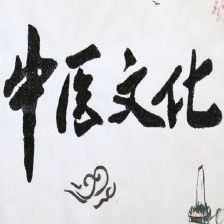 中医文化